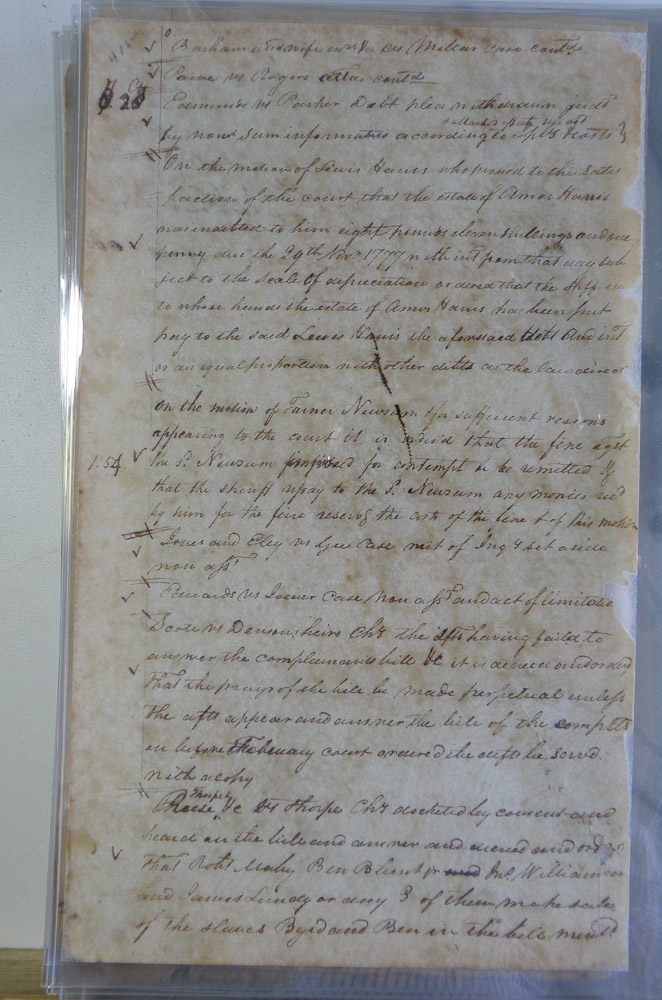 Barham and wife vs Millar case contd.
Paine vs Rogers atta contd
Edmunds vs Parker Debt plea withdrawn judt
by now sum informatus according to Spty & costs
On the motion of Lewis Harris who proved to the satis
faction of the court that the estate of Amos Harris
was indebted to him eight pounds eleven shillings and one
penny due the 29th Novr 1777 with int from that day sub
ject to the scale of depreciation ordered that the Shff in
to whose hands the estate of Amos Harris has been put
pay to the said Lewis Harris the aforesaid debt and int
or an equal proportion with other debts as the law direct
On the motion of Turner Newsum & for sufficient reasons
appearing to the court it is ordered that the fine agst
1:54 the sd. Newsum imposed for contempt be remitted &
that the sheriff repay to the sd. Newsum any monies recd
by him for the fine reserving the costs of the fine & of this motion
Jones and Eley vs case writ of Inqy set aside
non asst
Edwards vs Joiner case non asst and act of limitatio
Scott vs Densons heirs Chy the dfts having faild to
answer the complainants bill &c it is decreed and orderd
that the prayr of the bill be made perpetual unless
the dfts appear and answer the bill of the complts
on before February court ordered the defts be servd
with a copy
Thorpe &c vs Thorpe Chy docketed by consent and
heard on the bill and answer and decreed and ordr
that Robt Mabry Ben Blunt jr Jno. Williamson
and James Lundy or any 3 of them make sale
of the slaves Byrd and Ben in the bill mentd